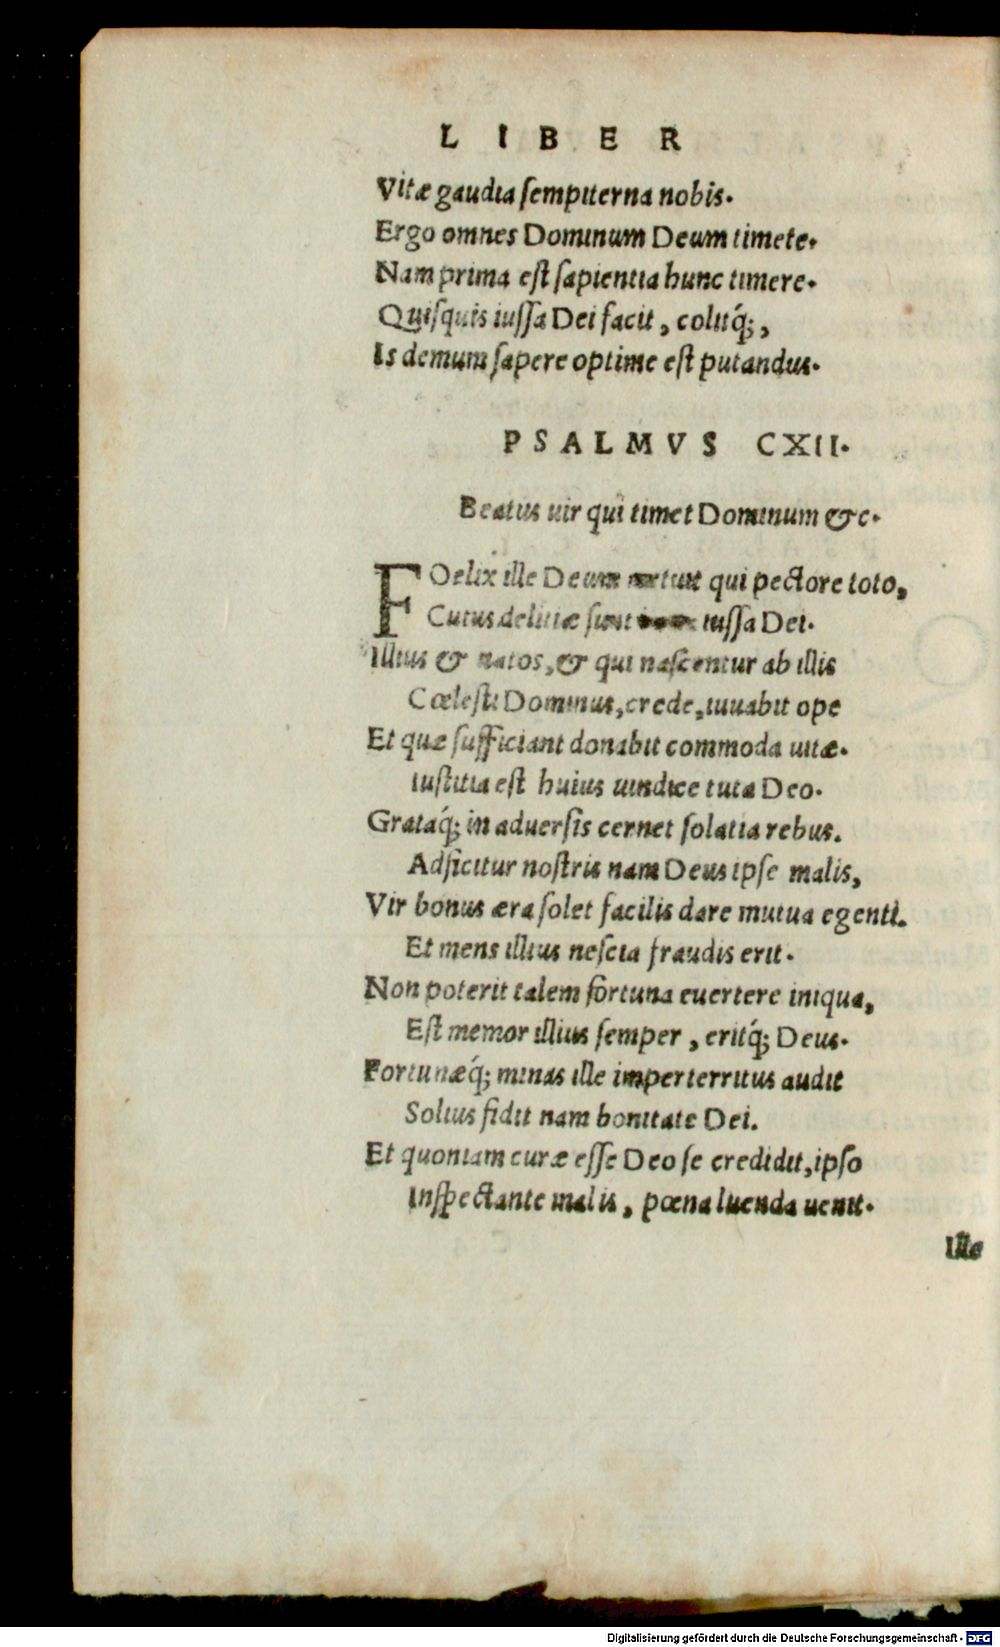 LIBER
Vitæ gaudia ſempiterna nobis.
Ergo omnes Dominum Deum timete.
Nam prima eſt ſapientia hunc timere.
Quiſquis iuſſa Dei facit, colitq́;,
Is demum ſapere optime eſt putandus.
PSALMVS CXII.
Beatus uir qui timet Dominum &c.
FOelix ille Deum metuit qui pectore toto,
Cuius delitiæ ſunt iuſſa Dei.
Illius & natos, & qui naſcentur ab illis
Cœleſti Dominus, crede, iuuabit ope
Et quæ ſufficiant donabit commoda uitæ.
Iuſtitia eſt huius uindice tuta Deo.
Grataq́; in aduerſis cernet ſolatia rebus.
Adficitur noſtris nam Deus ipſe malis,
Vir bonus æra ſolet facilis dare mutua egenti.
Et mens illius neſcia fraudis erit.
Non poterit talem fortuna euertere iniqua,
Eſt memor illius ſemper, eritq́; Deus.
Fortunæq́; minas ille imperterritus audit
Solius fidit nam bonitate Dei.
Et quoniam curæ eſſe Deo ſe credidit, ipſo
Inſpectante malis, pœna luenda uenit.
Ille
Digitalisierung gefördert durch die Deutsche Forschungsgemeinschaft - DFG